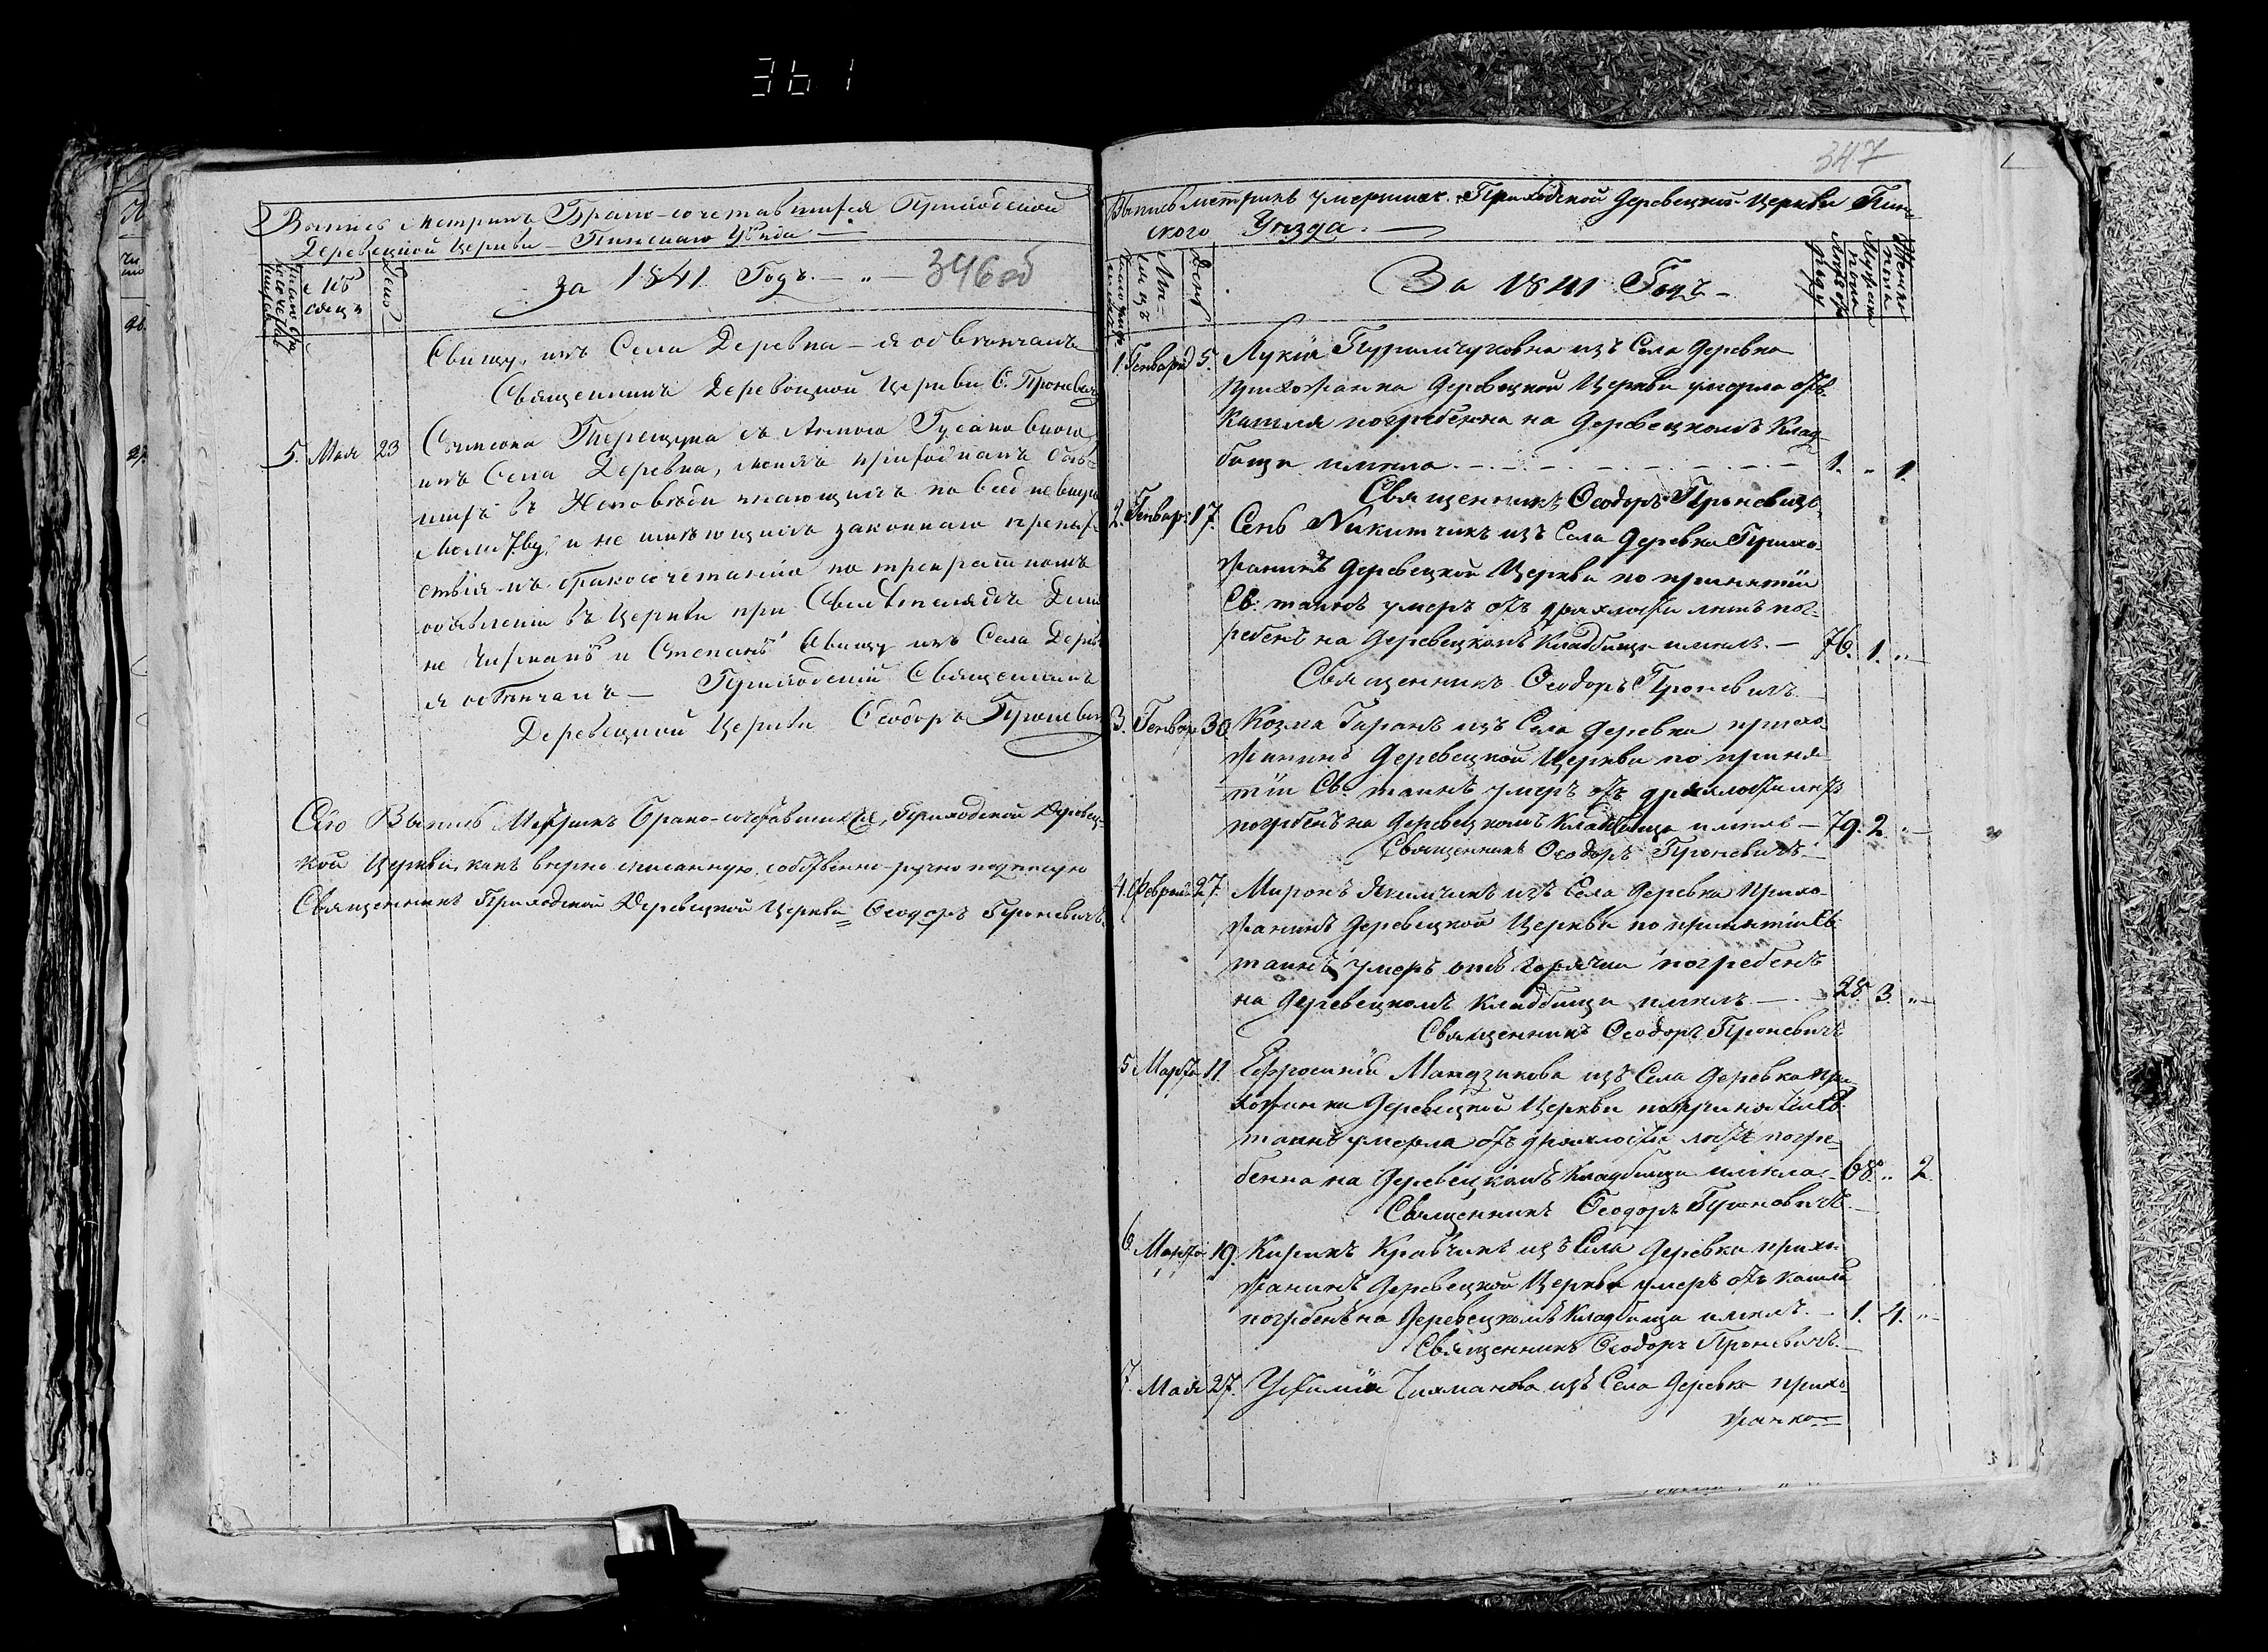 361
Выпись Метрикъ Брако-сочетавшихся Приходской
Деревецкой Церкви – Пинскаго Уѣзда –
месяцъ
День
За 1841 Годъ. – „ –
346 об
Свищу, изъ Села Деревка – я обвѣнчалъ
Священникъ Деревецкой Церкви Ѳ. Проневичъ
5. Мая 23
Терещука съ Анною
изъ Села Деревка, моихъ прихожанъ
въ Исповѣди знающихъ по вседневную
Молитву, и не имѣющихъ законнаго препят
ствія къ бракосочетанію по трекратномъ
объявленіи въ Церкви при Свидѣтеляхъ
и Степанѣ Свищу изъ Села Дерев
я обвѣнчалъ – Приходскій Священникъ
Деревецкой Церкви Ѳеодоръ Проневичъ
Сію Выпись Метрикъ Брако-сочетавшихся, Приходской Деревец-
кой Церкви, какъ вѣрно списанную, собственно-ручно подписую
Священникъ Приходской Деревецкой Церкви Ѳеодоръ Проневичъ.
347
Выпись метрикъ умершихъ. Приходской Деревецкой Церкви Пин-
ского Уѣзда. –
Месяцъ
День
За 1841 Годъ –
Мужска пола
Женска пола
1. Генваря 5. Лукія изъ Села Деревка
прихожанка Деревецкой Церкви умерла отъ
Кашля погребенна на Деревецкомъ Клад
бищи имѣла. – 1. „ 1.
Священникъ Ѳеодоръ Проневичъ
2. Генвар: 17. Сень Никитчикъ изъ Села Деревка Прихо-
жанинъ Деревецкой Церкви по принятіи
Св. таинъ умеръ отъ дряхлости лѣтъ пог-
ребенъ на Деревецкомъ Кладбищи имѣлъ. – 76. 1. „ –
Священникъ Ѳеодоръ Проневичъ
3. Генвар 30. Козма Гаранъ изъ Села Деревка прихо-
жанинъ Деревецкой Церкви по приня-
тіи Св. таинъ умеръ отъ дряхлости лѣтъ
погребенъ на Деревецкомъ Кладбищи имѣлъ – 79. 2. „ –
Священникъ Ѳеодоръ Проневичъ
4. Феврал: 27. Миронъ Якимчикъ изъ Села Деревка прихо-
жанинъ Деревецкой Церкви по принятіи Св.
таинъ умеръ отъ горячки погребенъ
на Деревецкомъ Кладбищи имѣлъ – 28 3. „ –
Священникъ Ѳеодоръ Проневичъ
5 Марта 11. Ефросинія Мандзикова изъ Села Деревка при-
хожанка Деревецкой Церкви по принятіи Св.
таинъ умерла отъ дряхлости лѣтъ погре-
бенна на Деревецкомъ Кладбищи имѣла – 68. „ 2.
Священникъ Ѳеодоръ Проневичъ
6. Марта 19. Кирикъ Кравчикъ изъ Села Деревка прихо-
жанинъ Деревецкой Церкви умеръ отъ кашля
погребенъ на Деревецкомъ Кладбищи имѣлъ. – 1. 4. „ –
Священникъ Ѳеодоръ Проневичъ.
7. Мая 27. изъ Села Деревка прихо-
жанка